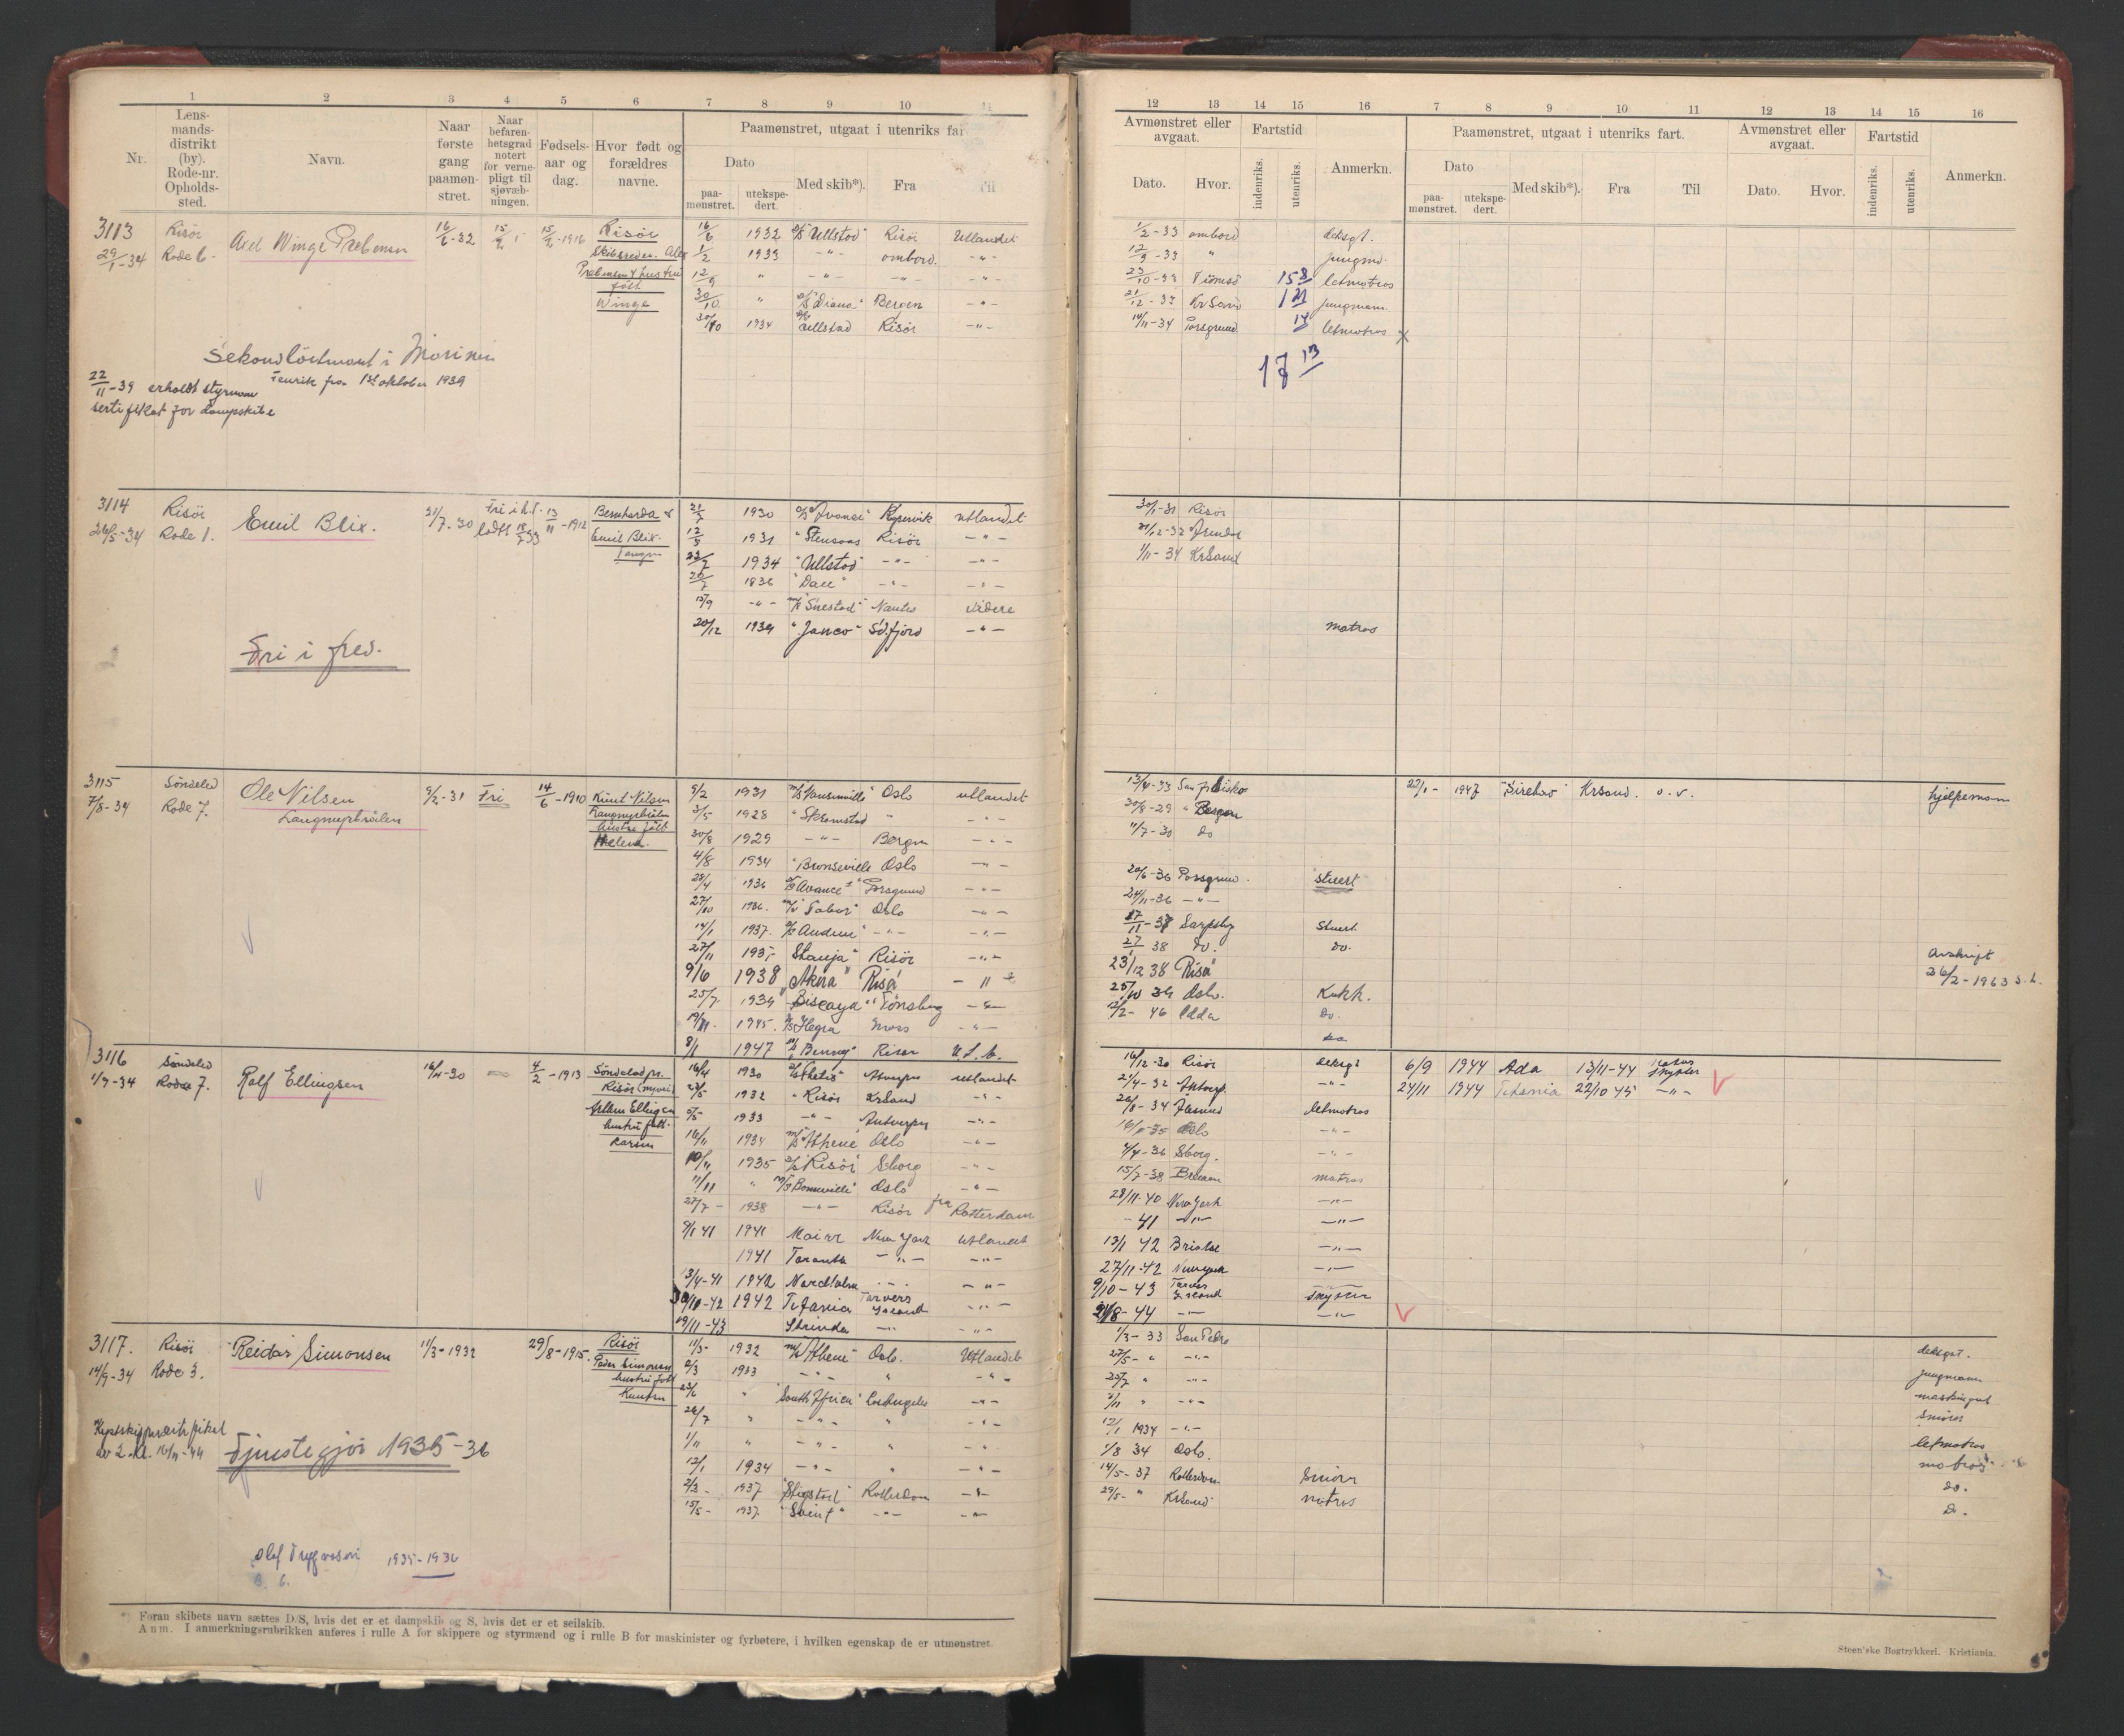 1 2 3 4 5 6 7 8 9 10 11
Nr.
Lens-
mands-
distrikt
(by).
Rode-nr.
Opholds-
sted.
Navn.
Naar
første
gang
paamøn-
stret.
Naar
befaren-
hetsgrad
notert
for verne-
pligt til
sjøvæb-
ningen.
Fødsels-
aar og
dag.
Hvor født og
forældres
navne.
Paamønstret, utgaat i utenriks far
Dato
paa-
mønstret.
utekspe-
dert.
Med skib*).
Fra
Til
3113 Risör Axel Winge Prebensen 16/6-32 15/2 15/2-1916 Risör
29/1-34 Rode 6.
Skibsreder Alex
Prebensen & hustru
født
Winge
16/6 1932 D/S Ullstad Risör Utlandet
1/2 1933 -"- ombord. -"-
12/9 " -"- -"- -"-
30/10 " D/S "Diana" Bergen -"-
30/10 1934 Ullstad Risör -"-
Sekondlöitnant i Marinen
Fenrik fra 1st oktober 1939
22/11-39 erholdt styrmann
sertifikat for dampskibe
3114 Risör Emil Blix. 21/7-30 Fri i h.t. 13/11-1912 Bernharda &
26/5-34 Rode 1.
Emil Blix.
Tangen
21/7 1930 Kopervik utlandet
12/5 1931 "Stensaas Risör -"-
23/7 1934 "Ullstad" -"- -"-
20/7 1836 -"- -"-
15/9 -"- M/S Snestad" Nantes videre
20/12 1939 "Janco" Sd.fjord -"-
Fri i fred.
3115 Söndeled Ole Nilsen 9/2-31 Fri 14/6-1910 Knut Nilsen
7/8-34 Rode 7. Langmyrbråten
Langmyrbråten
hustru født
Helene.
9/2 1931 Oslo utlandet
3/5 1928 "Skramstad " -"-
30/8 1929 -"- Bergen -"-
4/8 1934 "Bronxville Oslo -"-
28/4 1936 D/S Avance" Porsgrund -"-
27/10 1936. M/S "Tabor" Oslo -"-
14/1 1937. -"- -"-
27/11 193 "Stanja" Risör -"-
9/6 1938 "Akera" Risö - " -
25/7 1939 "Biscaya" Tönsberg -"-
19/11. 1945. Hegra -"-
8/1 1947 "Benny" Risør U.L.
3116 Söndeled Rolf Ellingsen 16/4-30 4/2-1913 Söndeled pr.
1/9-34 Rode 7.
Risör
Ellingsen
hustru født
Karsen
16/4 1930 D/S "Thetis" Antwerpen utlandet
23/5 1932 "Risör KrSand -"-
9/5 1933 -"- Antwerpen -"-
16/11 1934 M/S "Athene" Oslo -"-
10/11 1935 "Risör" Sborg -"-
11/11 " M/S Bonneville" Oslo -"-
27/7- 1938 -"- Risör fra Rotterdam
9/1 41 1941 New York Utlandet
1941 Taranta -"- -"-
3/4-41 1942 Nordholm -"- -"-
30/10-42 1942 Titania Tarvers -"-
19/11-43 Strinda -"- -"-
3117. Risör Reidar Simonsen 11/3-1932 29/8-1915. Risör
14/9-34 Rode 3.
Peder Simonsen
hustru født
Knutsen
11/3- 1932 M/S "Athene" Oslo. Utlandet
2/3 1933 -"- " -"-
23/6 " South Africa" Los Angeles -"-
26/7 " -"- " -"-
1/11 " -"- " -"-
12/1 1934 -"- " -"-
2/3- 1937 "Stigstad" Rotterdam -"-
15/5- 1937 "Saint" -"- -"-
av 2. kl. 16/11-44
Tjenstegjör 1935-36
Olaf Tryggvason 1935-1936
B. 6.
*) Foran skibets navn sættes D/S, hvis det er et dampskib og S, hvis det er et seilskib.
Anm. I anmerkningsrubrikken anføres i rulle A for skippere og styrmænd og i rulle B for maskinister og fyrbøtere, i hvilken egenskap de er utmønstret.
12 13 14 15 16 7 8 9 10 11 12 13 14 15 16
Avmønstret eller
avgaat.
Dato.
Hvor.
Fartstid
indenriks.
utenriks.
Anmerkn.
Paamønstret, utgaat i utenriks fart.
Dato
paa-
mønstret.
utekspe-
dert.
Med skib*).
Fra
Til
Avmønstret eller
avgaat.
Dato.
Hvor.
Fartstid
indenriks.
utenriks.
Anmerkn.
1/2-33 ombord deksgt.
12/9-33 " jungm.
23/10-33 Tromsö 15 8 letmatros
21/12-33 KrSand 1 21 jungmann
14/11-34 Porsgrund 14 letmatros x
17 13
30/1-31 Risör
21/12-32 Arendal
1/11-34 KrSand
matros
13/4-33 San Fr.cisko 22/1- 1947 "Sirehav" KrSand. o.v. hjelpemann
30/8-29 " Bergen
11/7-30 do
20/6-36 Porsgrund. stuert
24/11-36 -"-
17/11-37 Sarpsbg Stuert
27/1 38 do. do.
23/12 38 Risö Avskrift
26/2-1963 S.L.
25/10 39 Oslo. Kokk.
12/2- 46 Odda do.
do
16/12-30 Risör deksgt 6/9 1944 Ada 13/11-44
21/4-32 Antwrp. -"- 24/11 1944 Titania 22/10 45 -"- V
26/8-34 Ålesund letmatros
16/11-35 Oslo -"-
4/4-36 Sborg. -"-
15/7-38 Bremen matros
28/11-40 New York -"-
-41 -"- -"-
13/1 42 Bristol -"-
27/11-42 New York -"-
9/10-43 Tarvers
21/8-44 -"- -"- V
1/3-33 San Pedro deksgt.
27/5- " -"- jungmann
25/7 " -"-
1/11 " -"- Smörer
12/1 1934 -"- letmatros
1/8 34 Oslo. matros
14/5-37 Rotterdam Smörer do.
29/5- " KrSand matros do.
Steen'ske Bogtrykkeri. Kristiania.